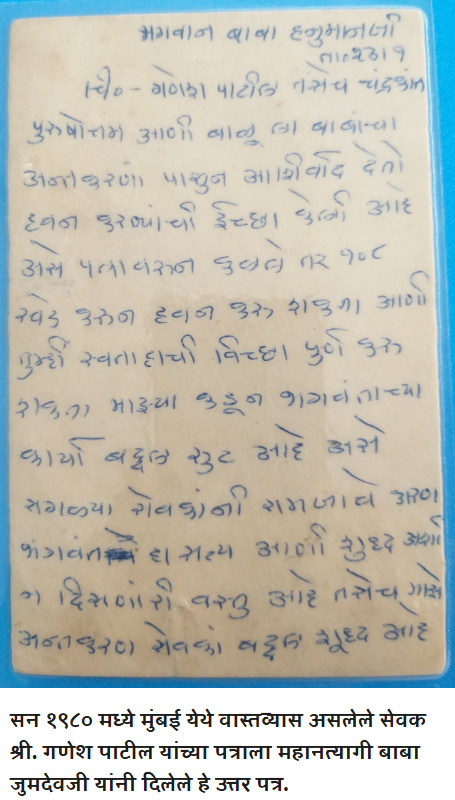 भगवान बाबा हनुमानजी
ता०
चि० - गणेश पाटील तसेच चंद्रकांत
पुरुषोत्तम आणी बाळू ला बाबांच्या
अन्तकरणा पासुन आशिर्वाद देतो
हवन करण्याची ईच्छा केली आहे
असे पत्रावरुन कळले तर १०८
करुन हवन करु शकता आणी
तुम्ही स्वताहाची विच्छा पुर्ण करु
शकता माझ्या कडून भगवंताच्या
कार्या बद्दल सुट आहे असे
सगळ्या सेवकांनी समजावे कारण
भगवंत हा सत्य आणी शुध्द आणी
न दिसणारी वस्तु आहे तसेच माझे
अन्तकरण सेवकां बद्दल शुध्द आहे
सन १९८० मध्ये मुंबई येथे वास्तव्यास असलेले सेवक
श्री. गणेश पाटील यांच्या पत्राला महानत्यागी बाबा
जुमदेवजी यांनी दिलेले हे उत्तर पत्र.